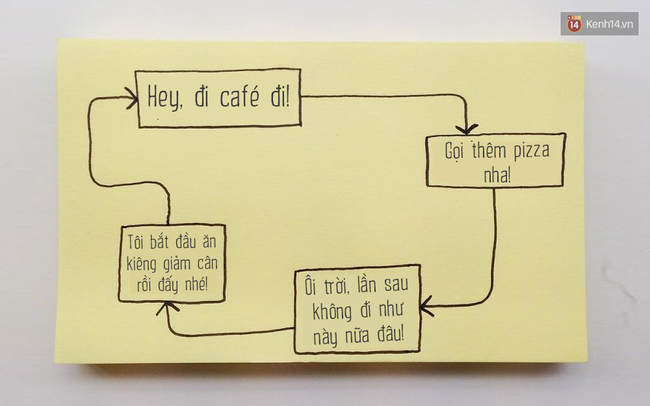 14 Kenh14.vn
Hey, đi café đi!
Gọi thêm pizza
nha!
Ôi trời, lần sau
không đi như
này nữa đâu!
Tôi bắt đầu ăn
kiêng giảm cân
rồi đấy nhé!